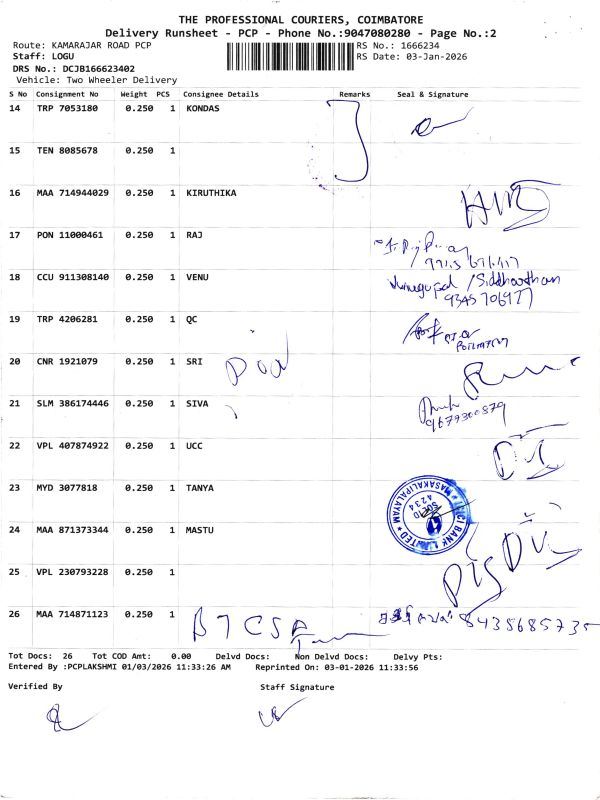 THE PROFESSIONAL COURIERS, COIMBATORE
Delivery Runsheet - PCP - Phone No.:9047080280 - Page No.:2
Route: KAMARAJAR ROAD PCP
RS No.: 1666234
Staff: LOGU
RS Date: 03-Jan-2026
DRS No.: DCJB166623402
Vehicle: Two Wheeler Delivery
S No Consignment No Weight PCS Consignee Details Remarks Seal & Signature
14 TRP 7053180 0.250 1 KONDAS
15 TEN 8085678 0.250 1
16 MAA 714944029 0.250 1 KIRUTHIKA
17 PON 11000461 0.250 1 RAJ
18 CCU 911308140 0.250 1 VENU
Venugopal /Siddhaarthan
9345706977
19 TRP 4206281 0.250 1 QC
20 CNR 1921079 0.250 1 SRI
21 SLM 386174446 0.250 1 SIVA
9679300879
22 VPL 407874922 0.250 1 UCC
23 MYD 3077818 0.250 1 TANYA
ICICI BANK LIMITED
MASAKALIPALAYAM
SOL ID
4234
24 MAA 871373344 0.250 1 MASTU
25 VPL 230793228 0.250 1
26 MAA 714871123 0.250 1
8435685735
Tot Docs: 26 Tot COD Amt: 0.00 Delvd Docs: Non Delvd Docs: Delvy Pts:
Entered By :PCPLAKSHMI 01/03/2026 11:33:26 AM Reprinted On: 03-01-2026 11:33:56
Verified By Staff Signature